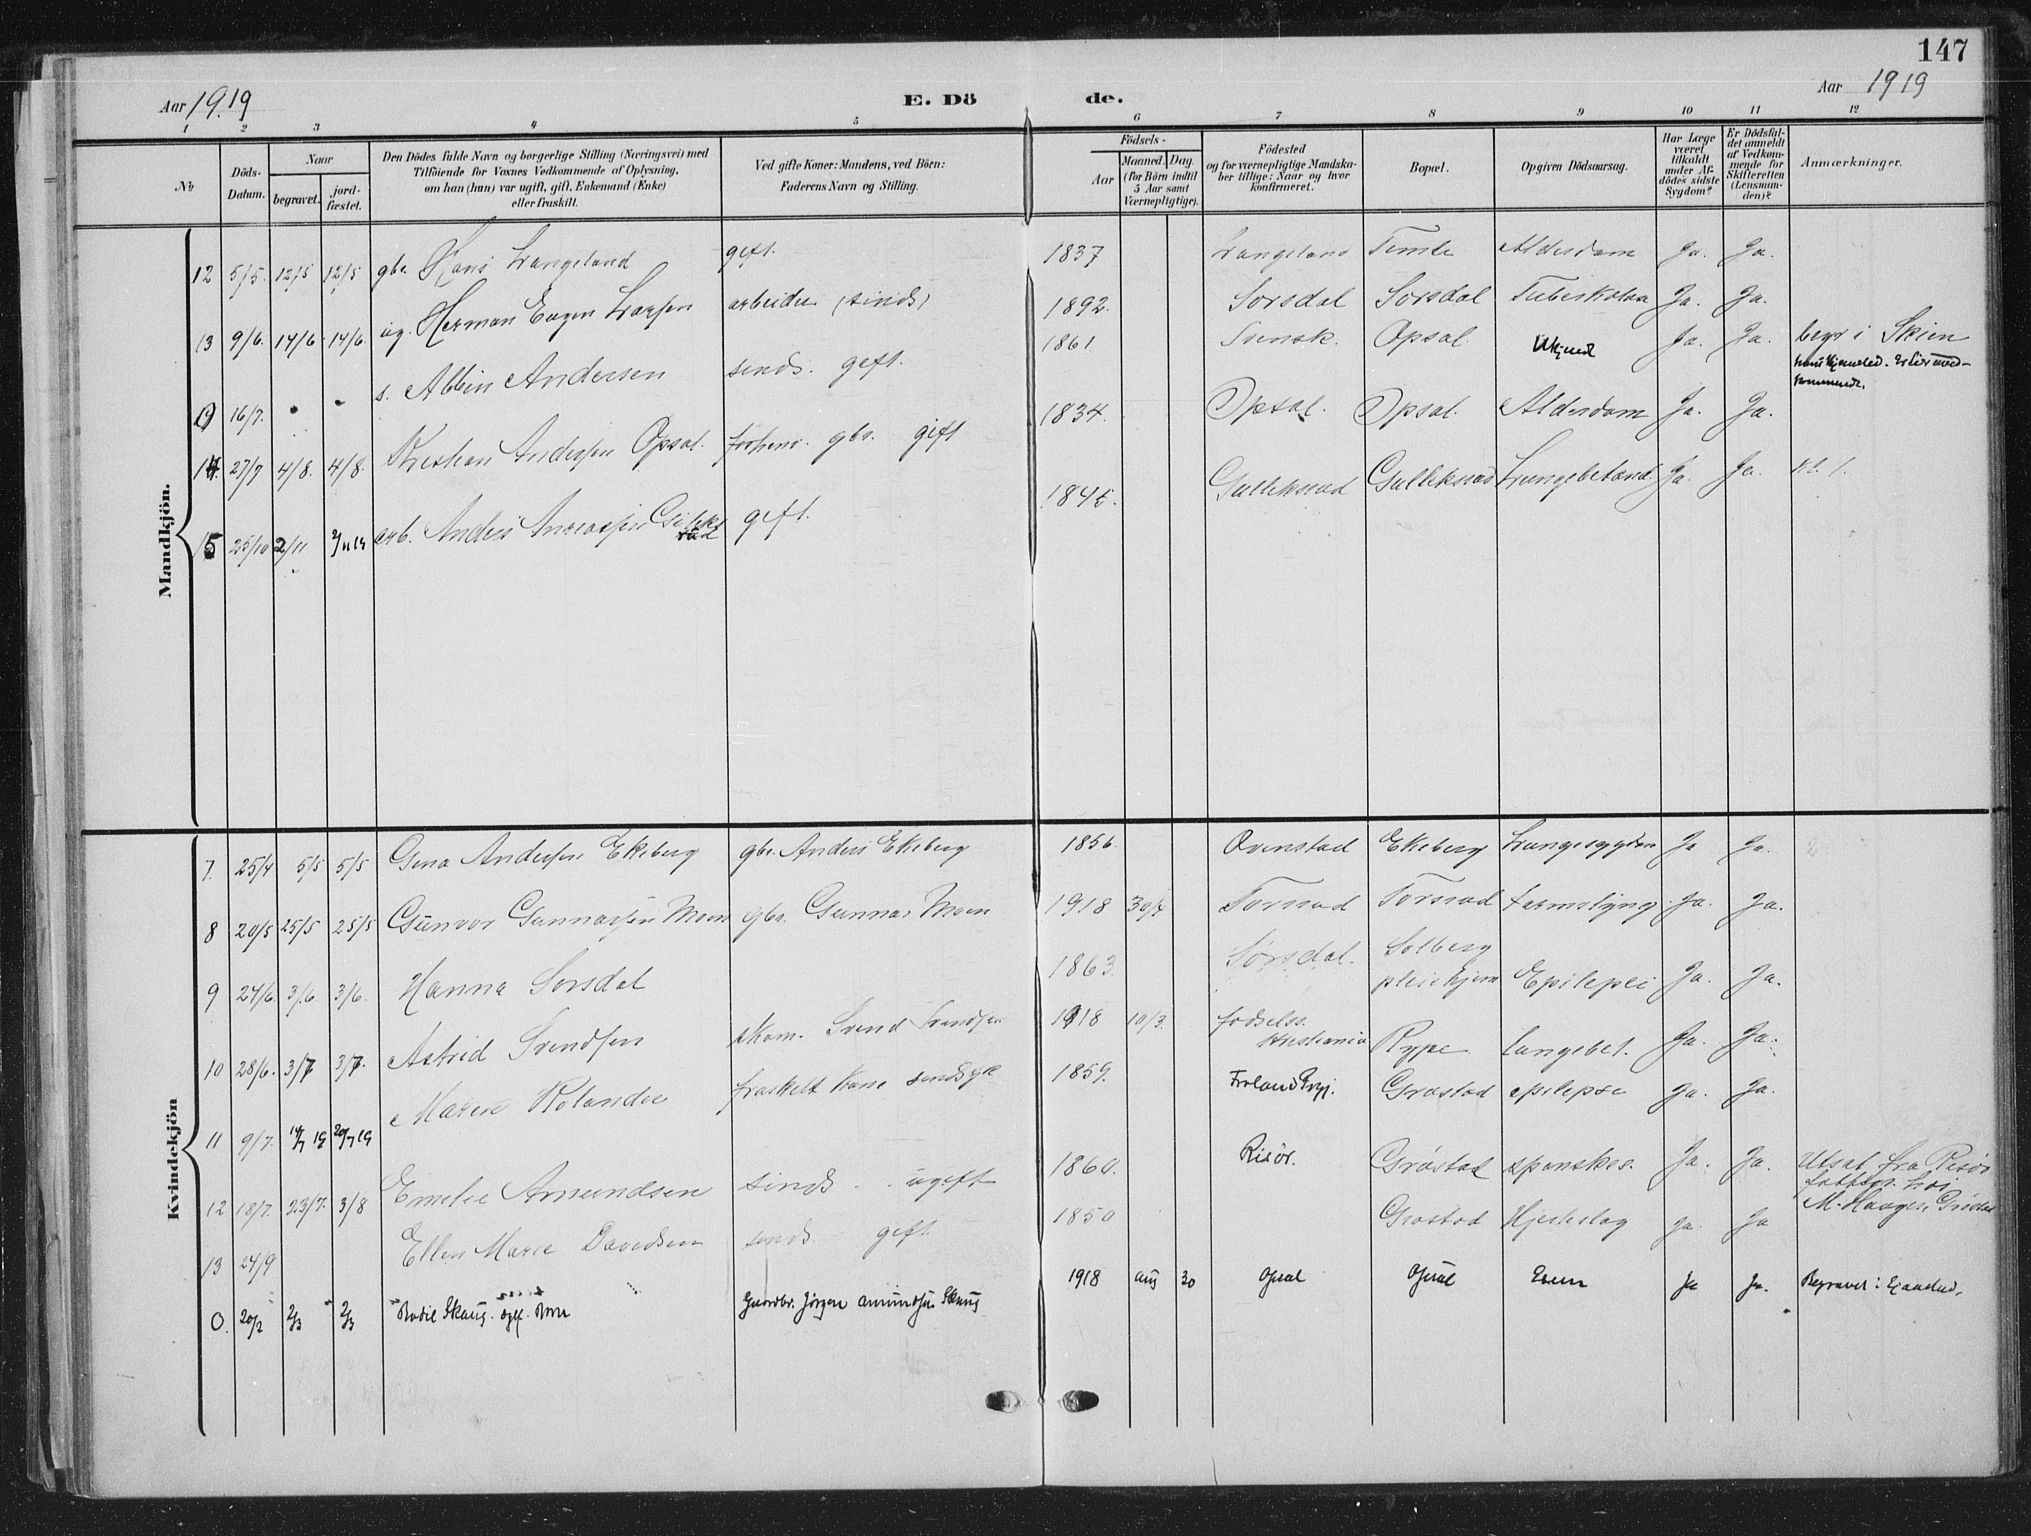 147
Aar 1919
E. Dö
de.
Aar 1919
1 2 3 4 5 6 7 8 9 10 11 12
No
Döds-
Datum.
Naar
begravet.
jord-
fæstet.
Den Dödes fulde Navn og borgerlige Stilling (Næringsvei) med
Tilföiende for Voxnes Vedkommende af Oplysning,
om han (hun) var ugift, gift, Enkemand (Enke)
eller fraskilt.
Ved gifte Koner: Mandens, ved Börn:
Faderens Navn og Stilling.
Födsels-
Aar
Maaned. Dag.
(for Börn indtil
5 Aar samt
Værnepligtige).
Födested
og for værnepligtige Mandska-
ber tillige: Naar og hvor
konfirmeret.
Bopæl.
Opgiven Dödsaarsag.
Har Læge
været
tilkaldt
under Af-
dödes sidste
Sygdom?
Er Dödsfal-
det anmeldt
af Vedkom-
mende for
Skifteretten
(Lensman-
den)?
Anmærkninger.
Mandkjön.
12 5/5. 12/5 12/5 gbr. Hans Langeland gift. 1837 Langeland Temte Alderdom Ja. Ja.
13 9/6. 14/6 14/6. ug. Herman Eugen Larsen arbeider (sinds) 1892. Sorsdal Sorsdal Tuberkulose Ja. Ja.
0 16/7. s. Albin Andersen sinds. gift. 1861 Svensk. Opsal. Ukjendt Ja. Ja. begr i Skien
14 27/7 4/8. 4/8. Kristian Andersen Opsal. forhenv. gbr. gift 1834. Opsal. Opsal. Alderdom Ja. Ja.
15 25/10 2/11 2/11 19 arb. Anders Andreassen Gulleks
rud gift. 1845. Gulleksrud Gulleksrud Lungebetænd. Ja. Ja. kl. 1.
Kvindekjön
7. 25/4 5/5 5/5 Gina Andersen Ekeberg gbr. Anders Ekeberg 1856. Ovenstad Ekeberg Lungesygdom Ja Ja.
8 20/5 25/5 25/5 Gunvor Gunnarsen Moen gbr. Gunnar Moen 1918 30/7 Torsrud Torsrud tarmslyng. Ja. Ja.
9 24/6. 3/6. 3/6. Hanna Sorsdal 1863. Sørsdal. Solberg
pleiehjem Epilepsi Ja. Ja.
10 28/6. 3/7 3/7. Astrid Svendsen skom. Svend Svendsen 1918 10/3. fødselss.
Kristiania Rype Lungebet. Ja. Ja.
11 9/7. 14/7 19 20/7 19 Maren Rolandie fraskilt kone sindsyk 1859. Froland Prgj. Grøstad epilepsi Ja. Ja.
12 18/7. 23/7. 3/8 Emilie Amundsen sinds. ugift 1860. Risör. Grøstad spanskes. Ja. Ja. Utsat fra Risör
fattigv. hos
M. Haagen, Grøstad
13 24/9 Ellen Marie Davidsen sinds. gift. 1850 Grøstad Hjerteslag Ja. Ja
0. 20/2 2/3 2/3 Bodil Skaug. ugf. Barn Gaardbr. Jörgen Amundsen Skaug 1918 Aug 30 Opsal Opsal Ja Ja. Begravet i Ejaasted.